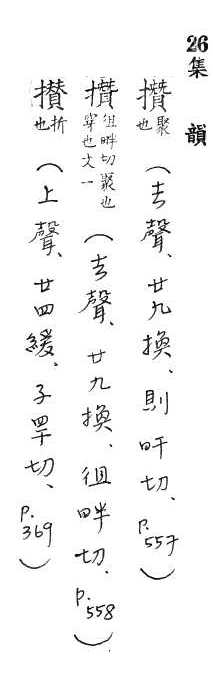 26 集韻
攢 聚也 (去聲、廿九換、則旰切、p.557)
攢 徂畔切聚也穿也文一 (去聲、廿九換、徂畔切、p.558)
攅 折也 (上聲、廿四緩、子罕切、p.369)